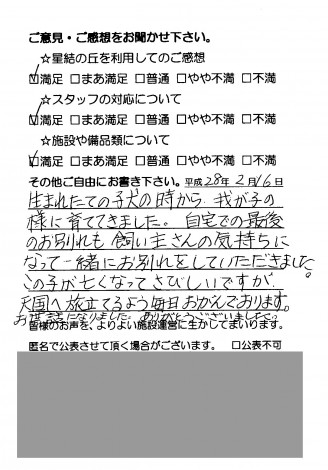 ご意見・ご感想をお聞かせ下さい。
☆星結の丘を利用してのご感想
☑満足 □まあ満足 □普通 □やや不満 □不満
☆スタッフの対応について
☑満足 □まあ満足 □普通 □やや不満 □不満
☆施設や備品類について
☑満足 □まあ満足 □普通 □やや不満 □不満
その他ご自由にお書き下さい。平成28年2月16日
生まれたての子犬の時から、我が子の
様に育ててきました。自宅での最後
のお別れも飼い主さんの気持ちに
なって一緒にお別れをしていただきました。
この子が亡くなってさびしいですが、
天国へ旅立てるよう毎日おがんでおります。
お世話になりました。ありがとうございました。
皆様のお声を、よりよい施設運営に生かしてまいります。
匿名で公表させて頂く場合がございます。 □公表不可